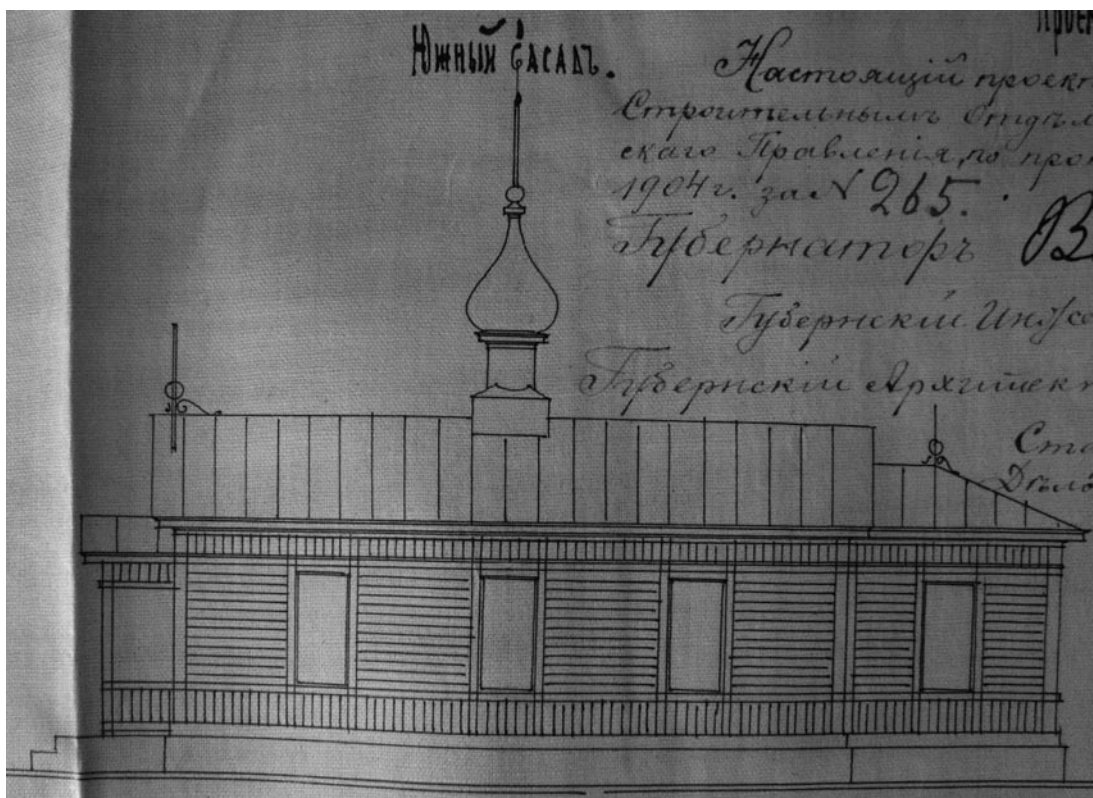 Южный Фасадъ.
Проек
Настоящій проект
Строительнымъ Отдѣл
скаго Правленія, по про
1904 г. за № 265.
Губернаторъ В
Губернскій Инже
Губернскій Архитект
Ста
Дѣло